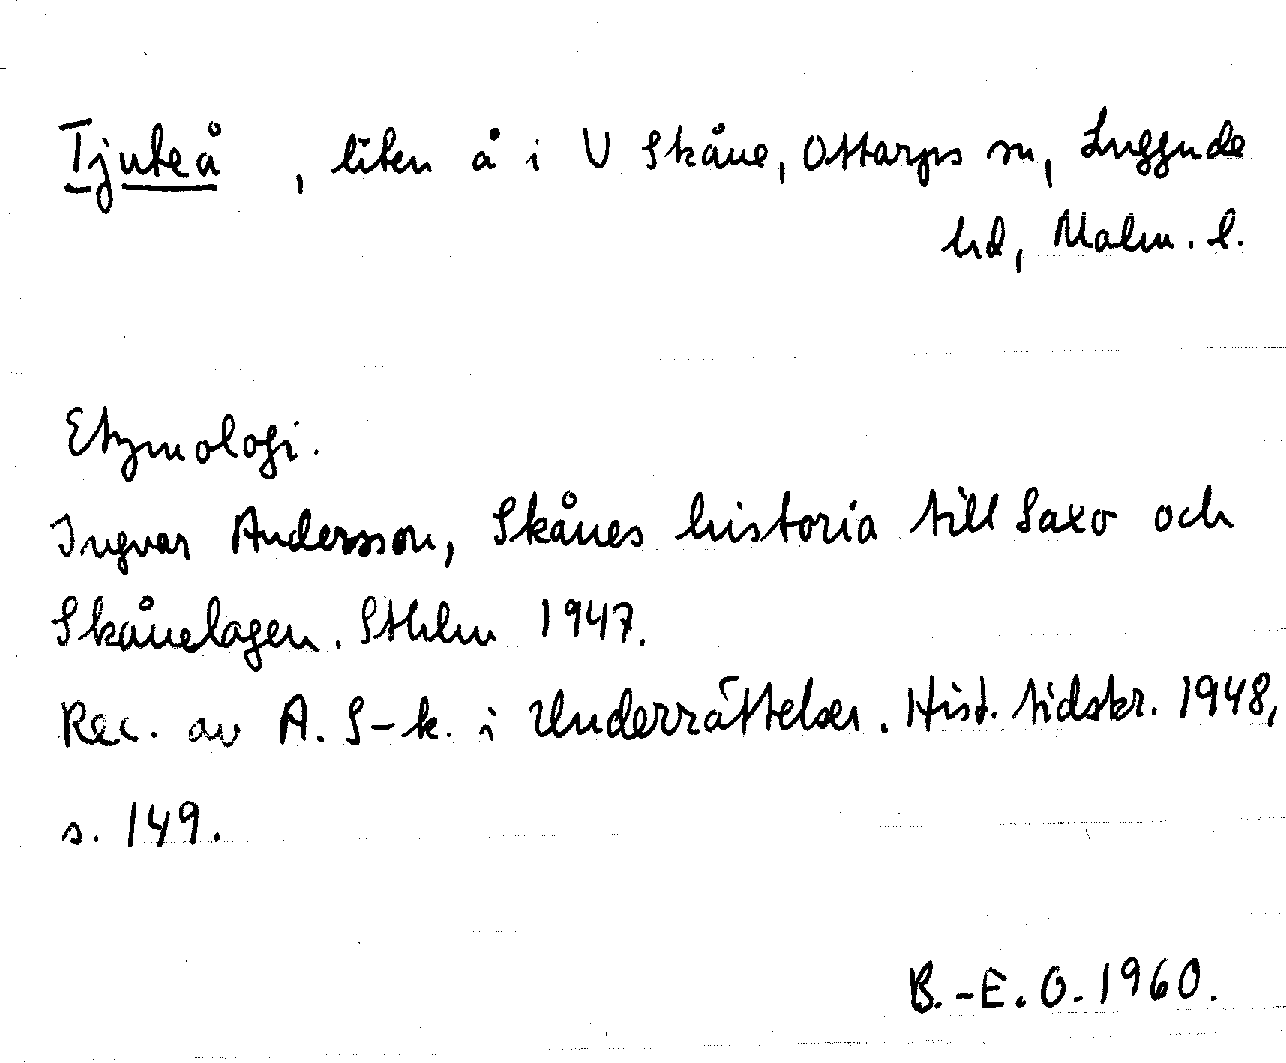 Tjuteå, liten å i V Skåne, Ottarps sn, Luggude
hd, Malm. l.
Etymologi.
Ingvar Andersson, Skånes historia till Saxo och
Skånelagen. Sthlm 1947.
Rec. av A. S-k. i Underrättelser. Hist. tidskr. 1948,
s. 149.
B.-E. O. 1960.